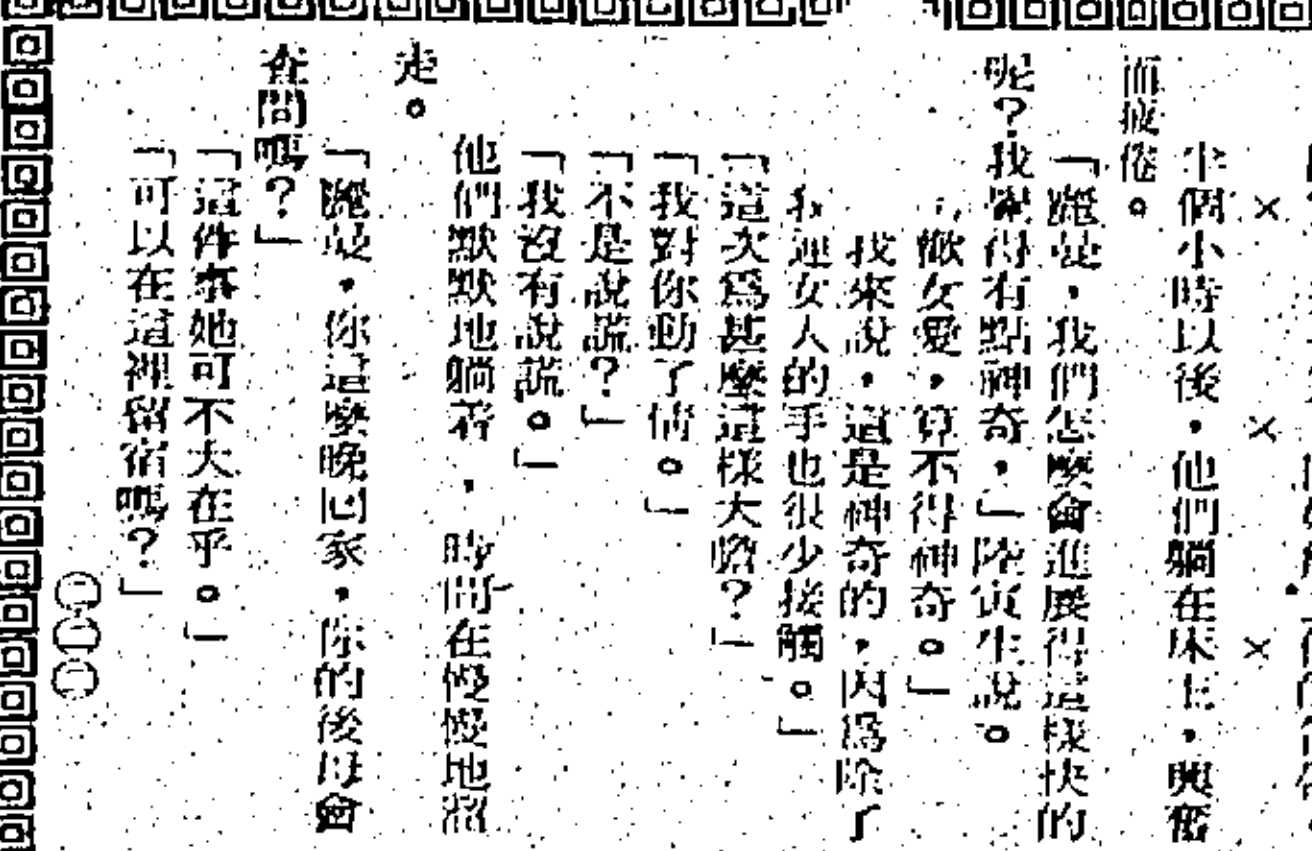 × × ×
半個小時以後，他們躺在床上，興奮
而疲倦。
「麗莎，我們怎麼會進展得這樣快的
呢？我覺得有點神奇，」陸寅生說。
歡女愛，算不得神奇。」
我來說，這是神奇的，因爲除了
我連女人的手也很少接觸。」
「這次爲甚麼這樣大膽？」
「我對你動了情。」
「不是說謊？」
「我沒有說謊。」
他們默默地躺着，時間在慢慢地溜
走。
「麗莎，你這麼晚回家，你的後母會
查問嗎？」
「這件事她可不大在乎。」
「可以在這裡留宿嗎？」